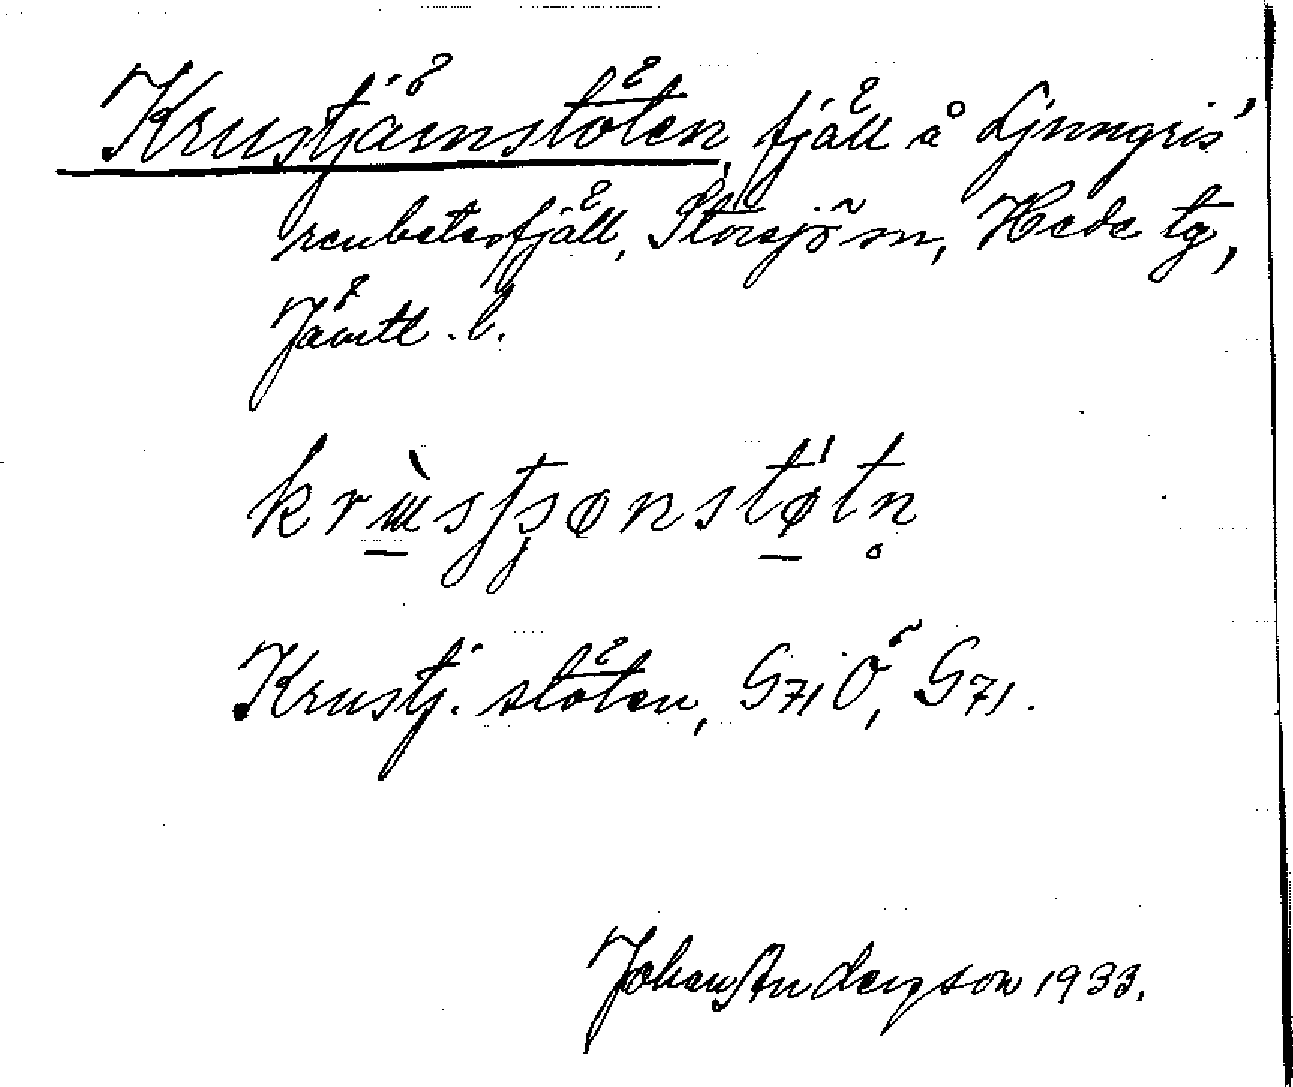 Krustjärnstöten, fjäll å Ljungris'
renbetesfjäll, Storsjö sn, Hede tg,
Jämtl. l.
krùsʃʂønstø'tn̥
Krustj. stöten, G71Ö, G71.
Johan Anderzson 1933.